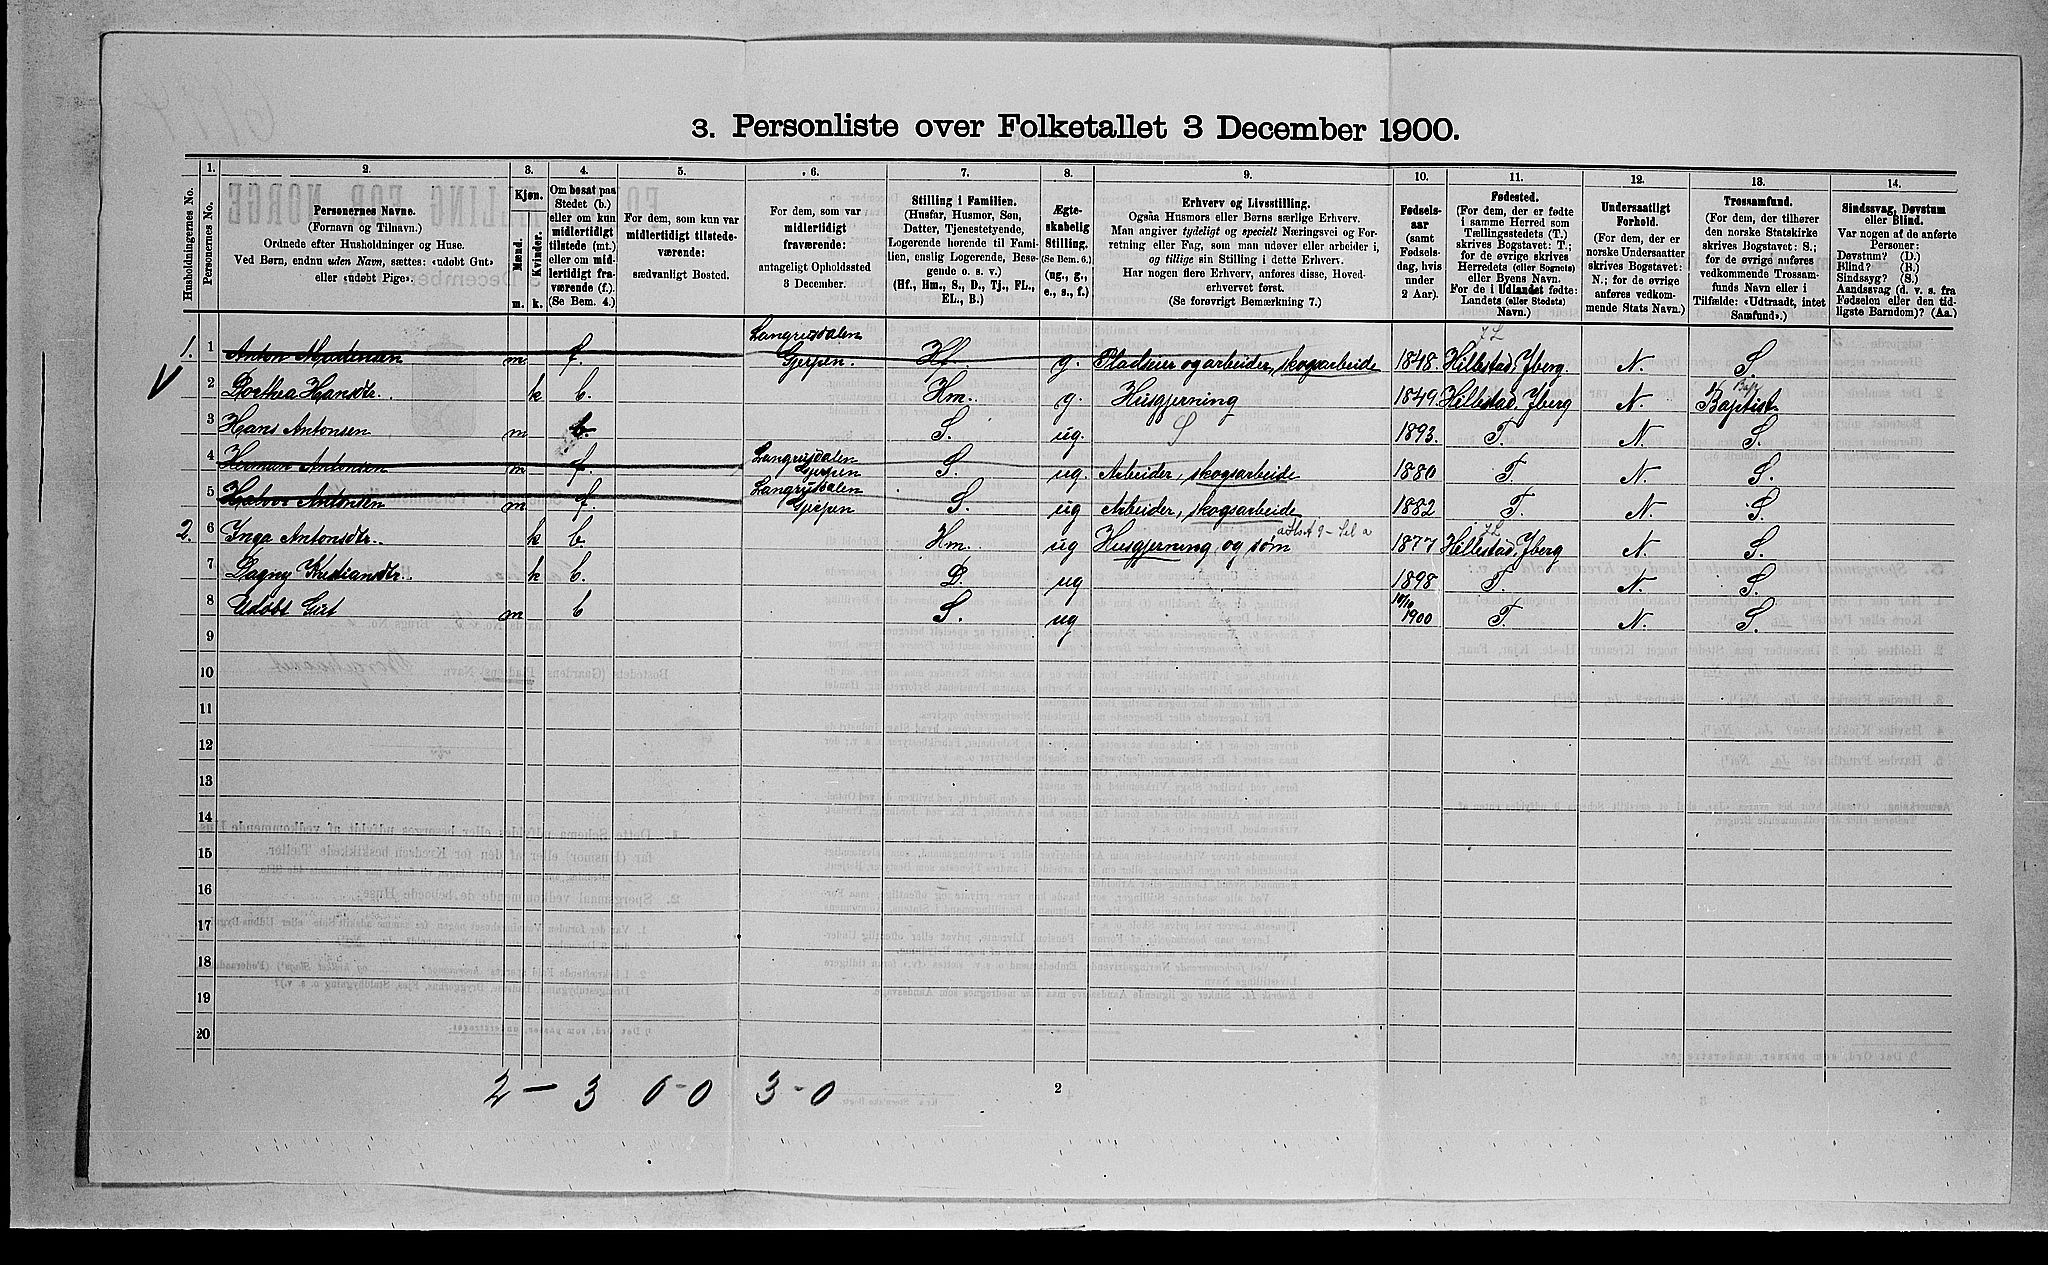 3. Personliste over Folketallet 3 December 1900.
Husholdningernes No.
1.
Personernes No.
2.
Personernes Navne.
(Fornavn og Tilnavn.)
Ordnede efter Husholdninger og Huse.
Ved Børn, endnu uden Navn, sættes: «udøbt Gut»
eller «udøbt Pige».
3.
Kjøn.
Mænd.
Kvinder.
m.
k.
4.
Om bosat paa
Stedet (b.)
eller om kun
midlertidigt
tilstede (mt.)
eller om mid-
lertidigt fra-
værende (f.).
(Se Bem. 4.)
5.
For dem, som kun var
midlertidigt tilstede-
værende:
sædvanligt Bosted.
6.
For dem, som var
midlertidigt
fraværende:
antageligt Opholdssted
3 December.
7.
Stilling i Familien.
(Husfar, Husmor, Søn,
Datter, Tjenestetyende,
Logerende hørende til Fami-
lien, enslig Logerende, Besø-
gende o. s. v.)
(Hf., Hm., S., D., Tj., FL.,
EL., B.)
8.
Ægte-
skabelig
Stilling.
(Se Bem. 6.)
(ug., g.,
e., s., f.)
9.
Erhverv og Livsstilling.
Ogsaa Husmors eller Børns særlige Erhverv.
Man angiver tydeligt og specielt Næringsvei og For-
retning eller Fag, som man udøver eller arbeider i,
og tillige sin Stilling i dette Erhverv.
Har nogen flere Erhverv, anføres disse, Hoved-
erhvervet først.
(Se forøvrigt Bemærkning 7.)
10.
Fødsels-
aar
(samt
Fødsels-
dag, hvis
under
2 Aar).
11.
Fødested.
(For dem, der er fødte
i samme Herred som
Tællingsstedets (T.)
skrives Bogstavet: T.;
for de øvrige skrives
Herredets (eller Sognets)
eller Byens Navn.
For de i Udlandet fødte:
Landets (eller Stedets)
Navn.)
12.
Undersaatligt
Forhold.
(For dem, der er
norske Undersaatter
skrives Bogstavet:
N.; for de øvrige
anføres vedkom-
mende Stats Navn.)
13.
Trossamfund.
(For dem, der tilhører
den norske Statskirke
skrives Bogstavet: S.;
for de øvrige anføres
vedkommende Trossam-
funds Navn eller i
Tilfælde: «Udtraadt, intet
Samfund».)
14.
Sindssvag, Døvstum
eller Blind.
Var nogen af de anførte
Personer:
Døvstum? (D.)
Blind? (B.)
Sindssyg? (S.)
Aandssvag (d. v. s. fra
Fødselen eller den tid-
ligste Barndom)? (Aa.)
1. 1 Anton Madensen m f. Langrusdalen Gjerpen. Hf. g. Pladseier og arbeider, skogsarbeide 1848. Hillestad, Jberg. N. S.
2 Dorthea Hansdtr. k b. Hm. g. Husgjerning 1849. Hillestad, Jberg N. Baptist
3 Hans Antonsen m b. S. ug. S 1893. T. N. S.
4 Herman Antonsen m f. Langrusdalen Gjerpen S. ug. Arbeider, skogsarbeide 1880 T. N. S.
5 Halvor Antonsen m f. Langrusdalen Gjerpen S. ug Arbeider, skogsarbeide 1882 T. N. S.
2. 6 Inga Antonsdtr. k b. Hm. ug Husgjerning og søm 1877 Hillestad, Jberg N. S.
7 Dagny Kristiansdtr. k b. D. ug 1898 T. N. S.
8 Udøbt Gut m b S. ug 1900 T. N. S.
9
10
11
12
13
14
15
16
17
18
19
20
2 – 3 0-0 3-0
2